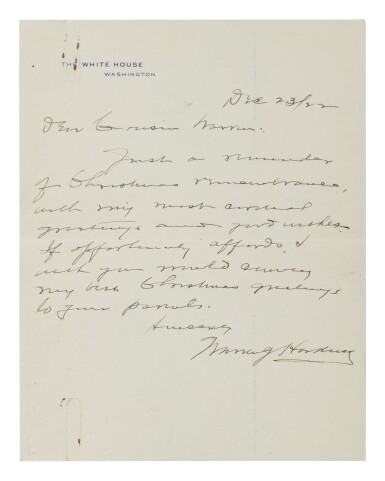 THE WHITE HOUSE
WASHINGTON
Dec 23/22
Dear Cousin Warren:
Just a reminder
of Christmas remembrance,
with my most cordial
greetings and good wishes.
If opportunity affords, I
wish you would convey
my best Christmas greetings
to your parents.
Sincerely
Warren G Harding